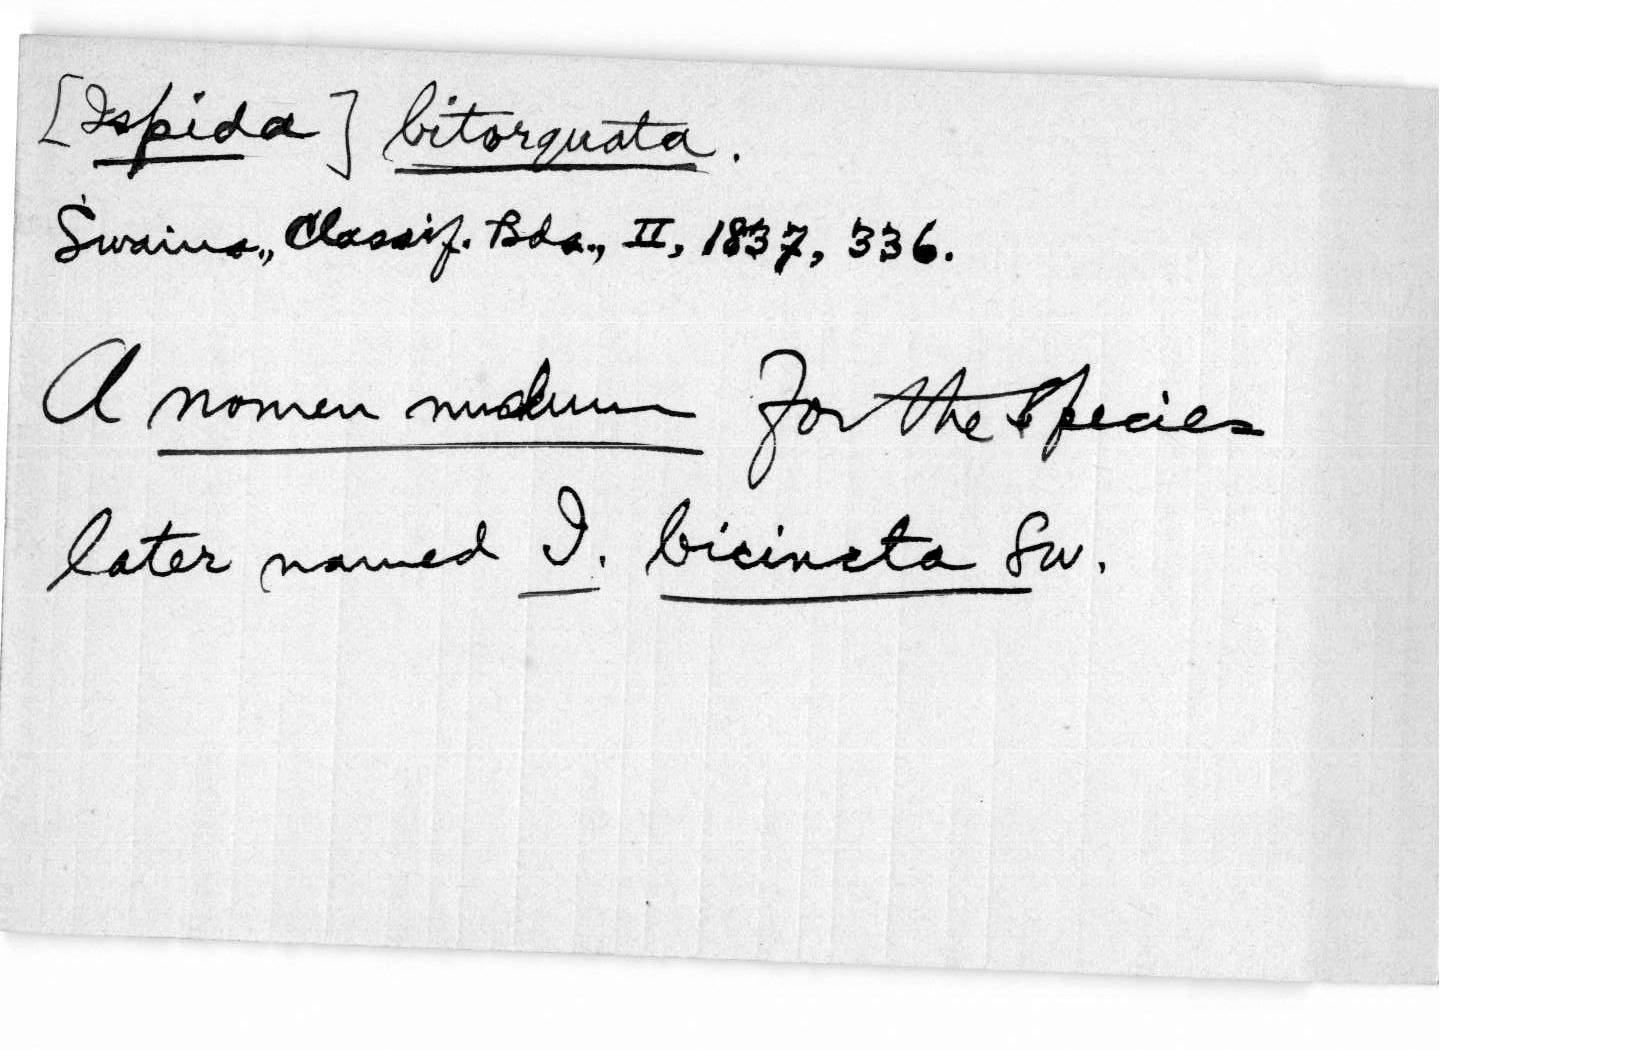 [Ispida] bitorquata.
Swains., Classif. Bds., II, 1837, 336.
A nomen nudum for the species
later named I. bicincta Sw.